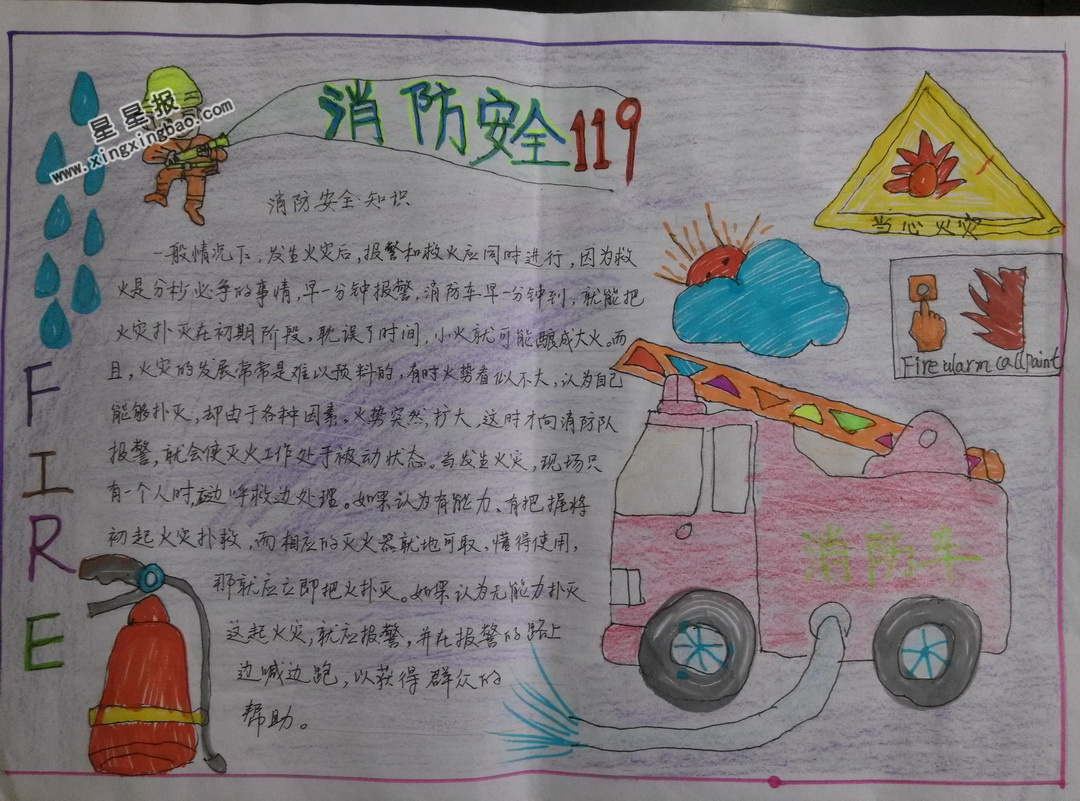 星星报
www.xingxingbao.com
消防安全119
消防安全知识
一般情况下,发生火灾后,报警和救火应同时进行,因为救
火是分秒必争的事情,早一分钟报警,消防车早一分钟到,就能把
火灾扑灭在初期阶段,耽误了时间,小火就可能酿成大火。而
且,火灾的发展常常是难以预料的,有时火势看似不大,认为自己
能够扑灭,却由于各种因素,火势突然,扩大,这时才向消防队
报警,就会使灭火工作处于被动状态。当发生火灾,现场只
有一个人时,应边呼救边处理。如果认为有能力、有把握将
初起火灾扑救,而相应的灭火器就地可取,懂得使用,
那就应立即把火扑灭。如果认为无能力扑灭
这起火灾,就应报警,并在报警的路上
边喊边跑,以获得群众的
帮助。
FIRE
当心火灾
Fire ularm call paint
消防车